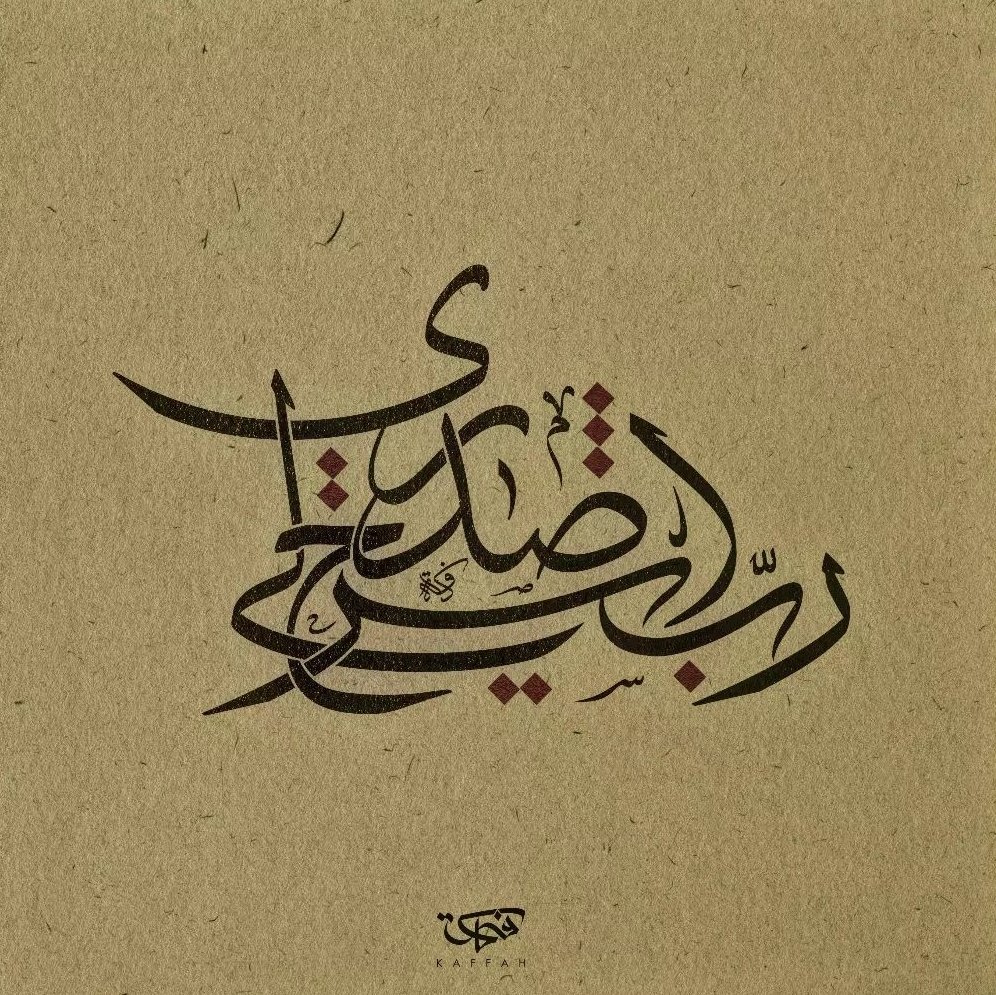 رب اشرح لي صدري
KAFFAH